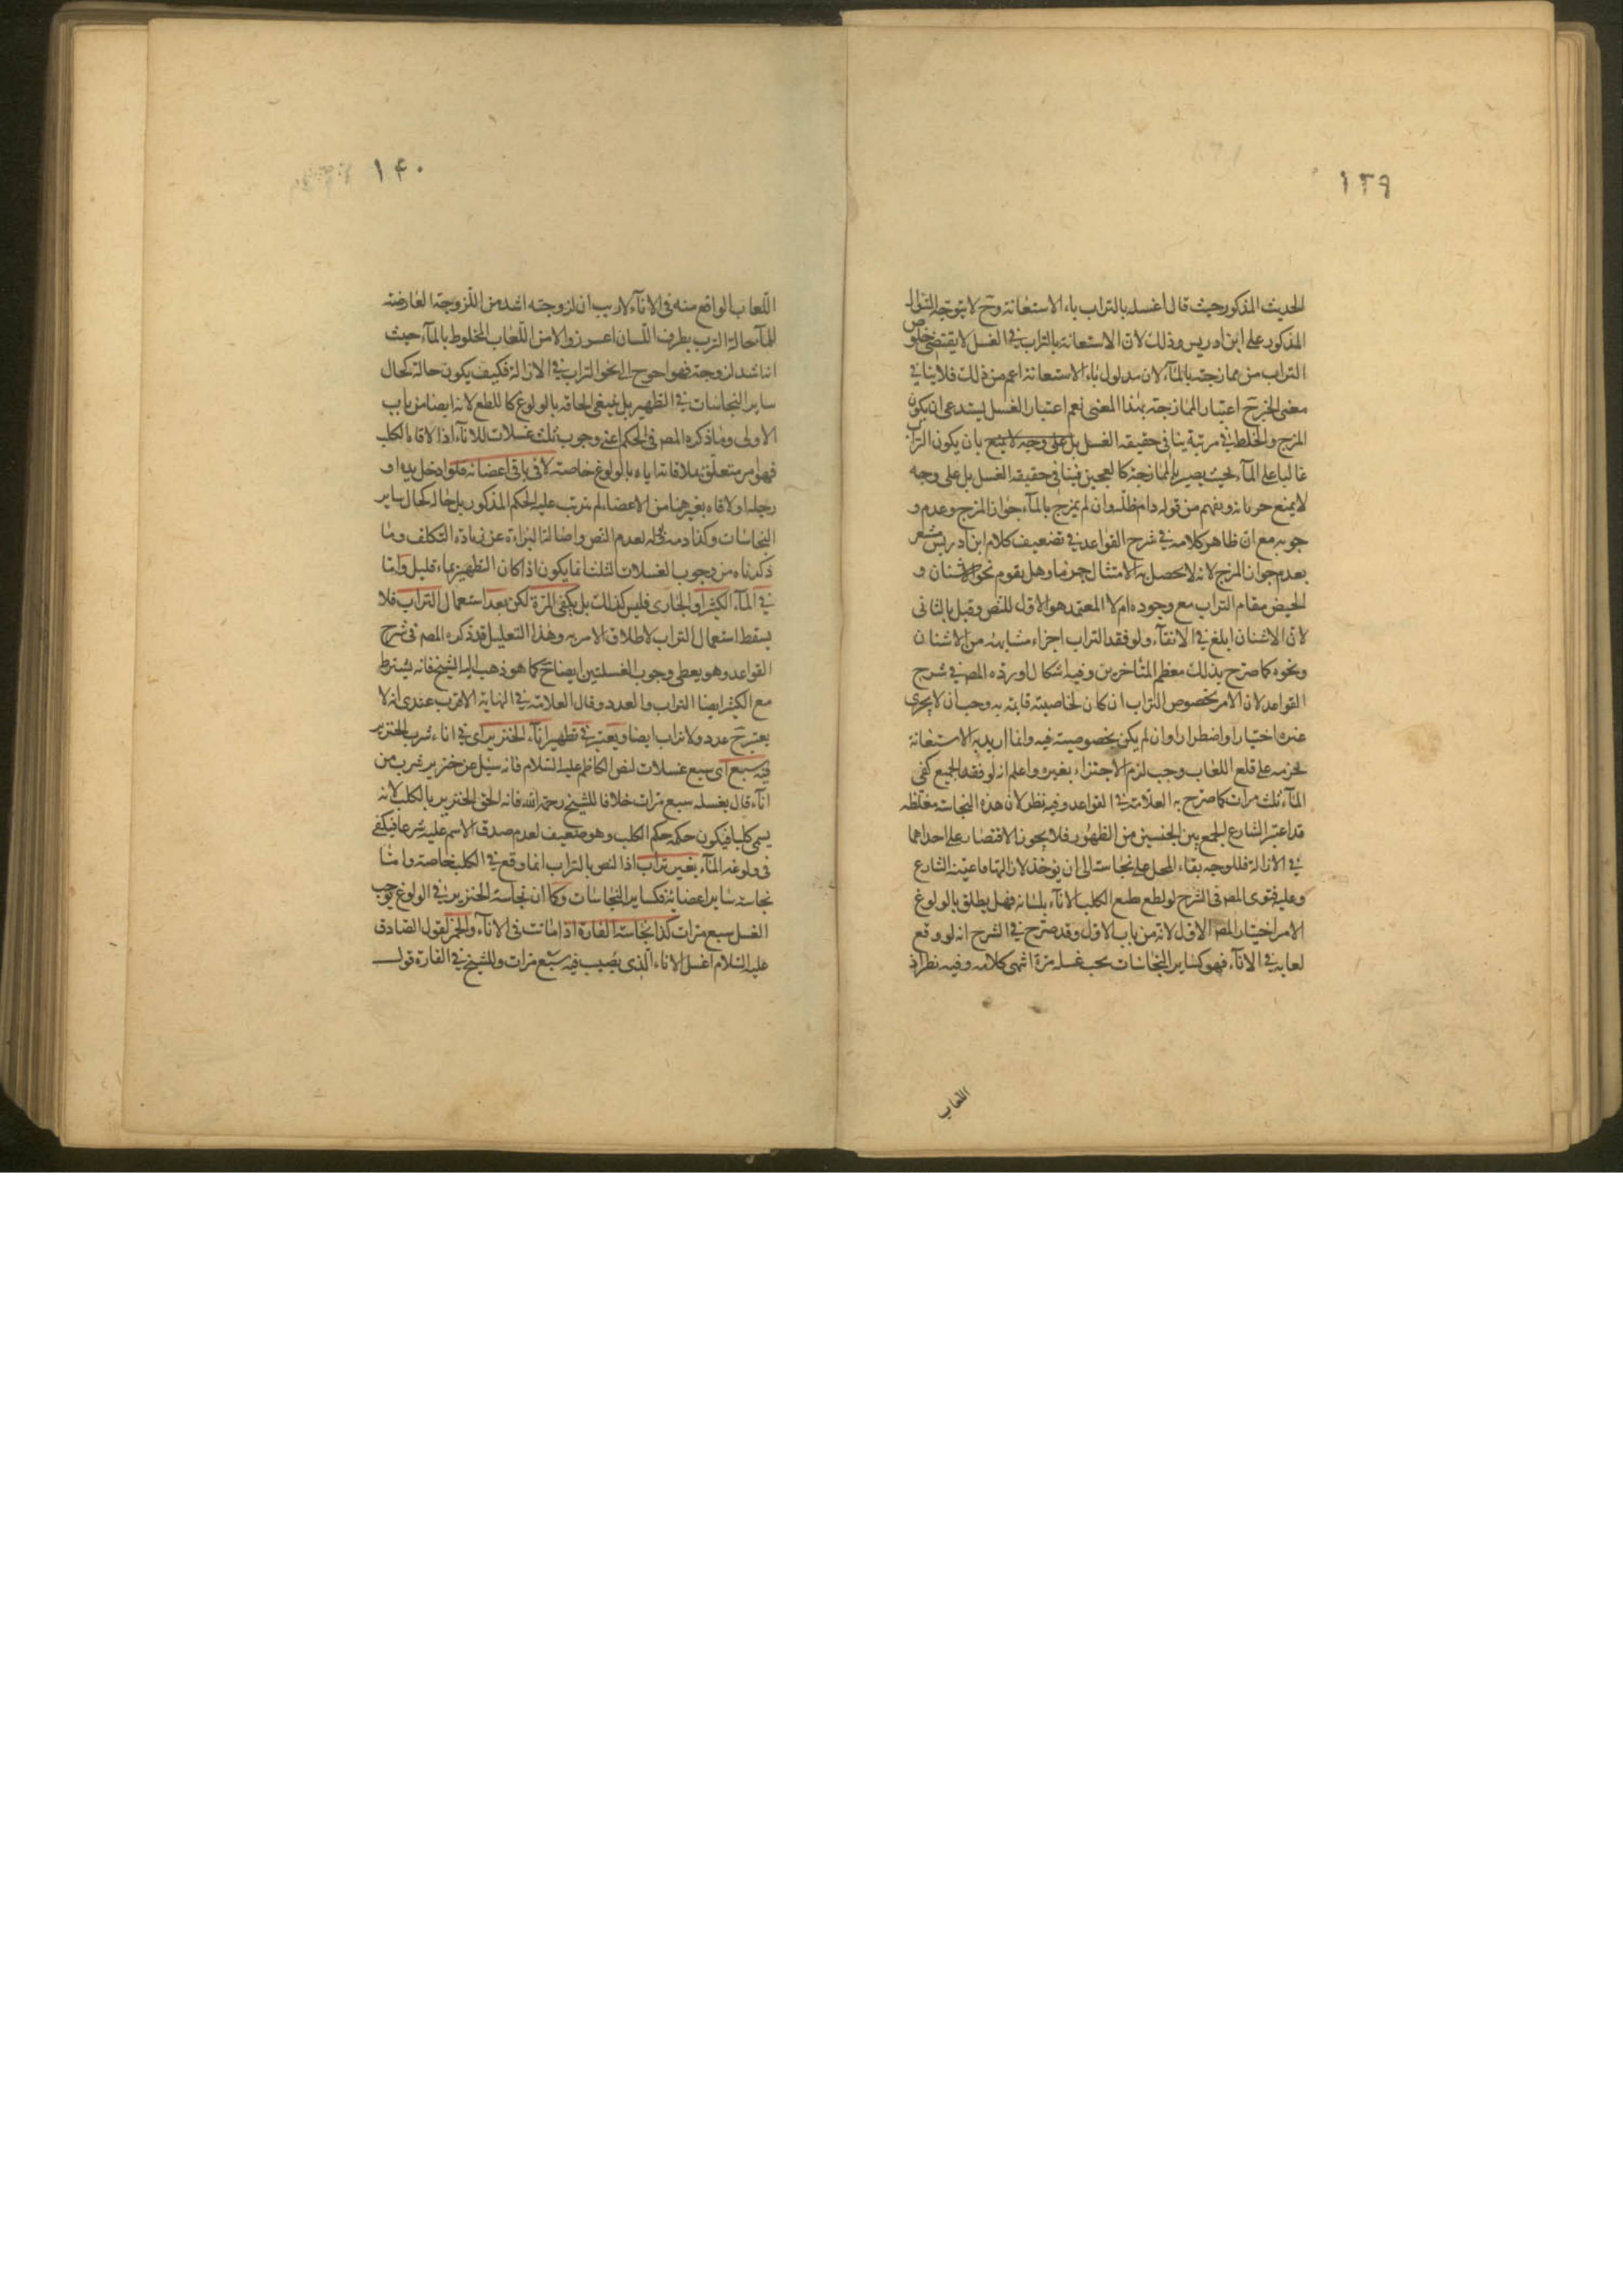 ١٣٩
الحديث المذكور حيث قال اغسله بالتراب باء الاستعانة وح لا يتوجه السؤال
المذكور على ابن ادريس وذلك لان الاستعانة بالتراب في الغسل لا يقتضي خلوص
التراب من ممازجته بالمآء لان مدلول باء الاستعانة اعم من ذلك فلا ينافي
معنى الخبر ح اعتبار الممازجة بهذا المعنى نعم اعتبار الغسل يستدعى ان يكون
المزج والخلط في مرتبة ينافى حقيقة الغسل بل على وجه لا يمنع بان يكون التراب
غالبا على المآء بحيث يصير بالممازجة كالعجين فينافى حقيقة الغسل بل على وجه
لا يمنع جريانه ويفهم من قوله دام ظله وان لم يمزج بالمآء جواز المزج وعدم و
جوبه مع ان ظاهر كلامه في شرح القواعد في تضعيف كلام ابن ادريس مشعر
بعدم جواز المزج لانه لا يحصل به الامتثال جزما وهل يقوم نحو الاشنان و
الجص مقام التراب مع وجوده ام لا المعتمد هو الاول للنص وقيل بالثانى
لان الاشنان ابلغ في الانقآء ولو فقد التراب اجزاء مشابهه من الاشنان
ونحوه كما صرح بذلك معظم المتاخرين وفيه اشكال اورده المص في شرح
القواعد لان الامر بخصوص التراب ان كان لخاصية قايمة به وجب ان لا يجزى
غيره اختيارا واضطرارا وان لم يكن بخصوصيته فيه وانما اريد به الاستعانة
بجرمه على قلع اللعاب وجب لزم الاجتزاء بغيره واعلم انه لو فقد الجميع كفى
المآء ثلث مرات كما صرح به العلامة في القواعد وفيه نظر لان هذه النجاسة مغلظة
قد اعتبر الشارع الجمع بين الجنسين من الطهور فلا يجوز الاقتصار على احداهما
في الازالة فللوجه بقاء المحل على نجاسته الى ان يوخذ لازالتها ما عينه الشارع
وعليه فتوى المص فى الشرح لو لطع الكلب الانآء بلسانه فهل يطلق بالولوغ
الامر اختيار المص الاول لانه من باب الاول وقد صرح في الشرح انه لو وقع
لعابه في الانآء فهو كساير النجاسات يجب غسله مرة انتهى كلامه وفيه نظر اذ
اللعاب
١۴٠
اللعاب الواقع منه فى الانآء لا ريب ان لزوجته اشد من اللزوجة العارضة
للمآء حالة الشرب بطرف اللسان اعسر زوالا من اللعاب المخلوط بالمآء حيث
انه اشد لزوجة فهو احوج الى نحو التراب في الازالة فكيف يكون حاله كحال
ساير النجاسات في التطهير بل ينبغى الحاقه بالولوغ كاللطع لانه ايضا من باب
الاولى وما ذكره المص فى الحكم اعنى وجوب ثلث غسلات للانآء اذا لاقاه الكلب
فهو امر متعلق بملاقاته اياه بالولوغ خاصة لا فى باقى اعضائه فلو ادخل يده او
رجله او لاقاه بغيرهما من الاعضاء لم يترتب عليه الحكم المذكور بل حاله كحال ساير
النجاسات وكذا دمه وبوله لعدم النص واصالة البراءة عن زيادة التكلف وما
ذكرناه من وجوب الغسلات الثلث انما يكون اذا كان التطهير بماء قليل واما
في المآء الكثير او الجارى فليس كذلك بل يكفى المرة لكن بعد استعمال التراب فلا
يسقط استعمال التراب لاطلاق الامر به وهذا التعليل قد ذكره المص فى شرح
القواعد وهو يعطى وجوب الغسلتين ايضا ح كما هو ذهب اليه الشيخ فانه يشترط
مع الكثير ايضا التراب والعدد وقال العلامة في النهاية الاقرب عندى انه لا
يعتبر ح عدد ولا تراب ايضا ويعتبر في تطهير انآء الخنزير اى في اناء شرب الخنزير
فيه سبع اى سبع غسلات لنص الكاظم عليه السلام فانه سئل عن خنزير شرب من
انآء قال يغسله سبع مرات خلافا للشيخ رحمة الله فانه الحق الخنزير بالكلب لانه
يسمى كلبا فيكون حكمه حكم الكلب وهو ضعيف لعدم صدق الاسم عليه شرعا فيكفى
فى ولوغه المآء بغير تراب اذ النص بالتراب انما وقع في الكلب خاصة واما
نجاسة ساير اعضائه فكساير النجاسات وكما ان نجاسة الخنزير في الولوغ يوجب
الغسل سبع مرات كذا نجاسة الفارة اذا ماتت فى الانآء والخمر لقول الصادق
عليه السلام اغسل الاناء الذى يصيب فيه سبع مرات وللشيخ في الفارة قول